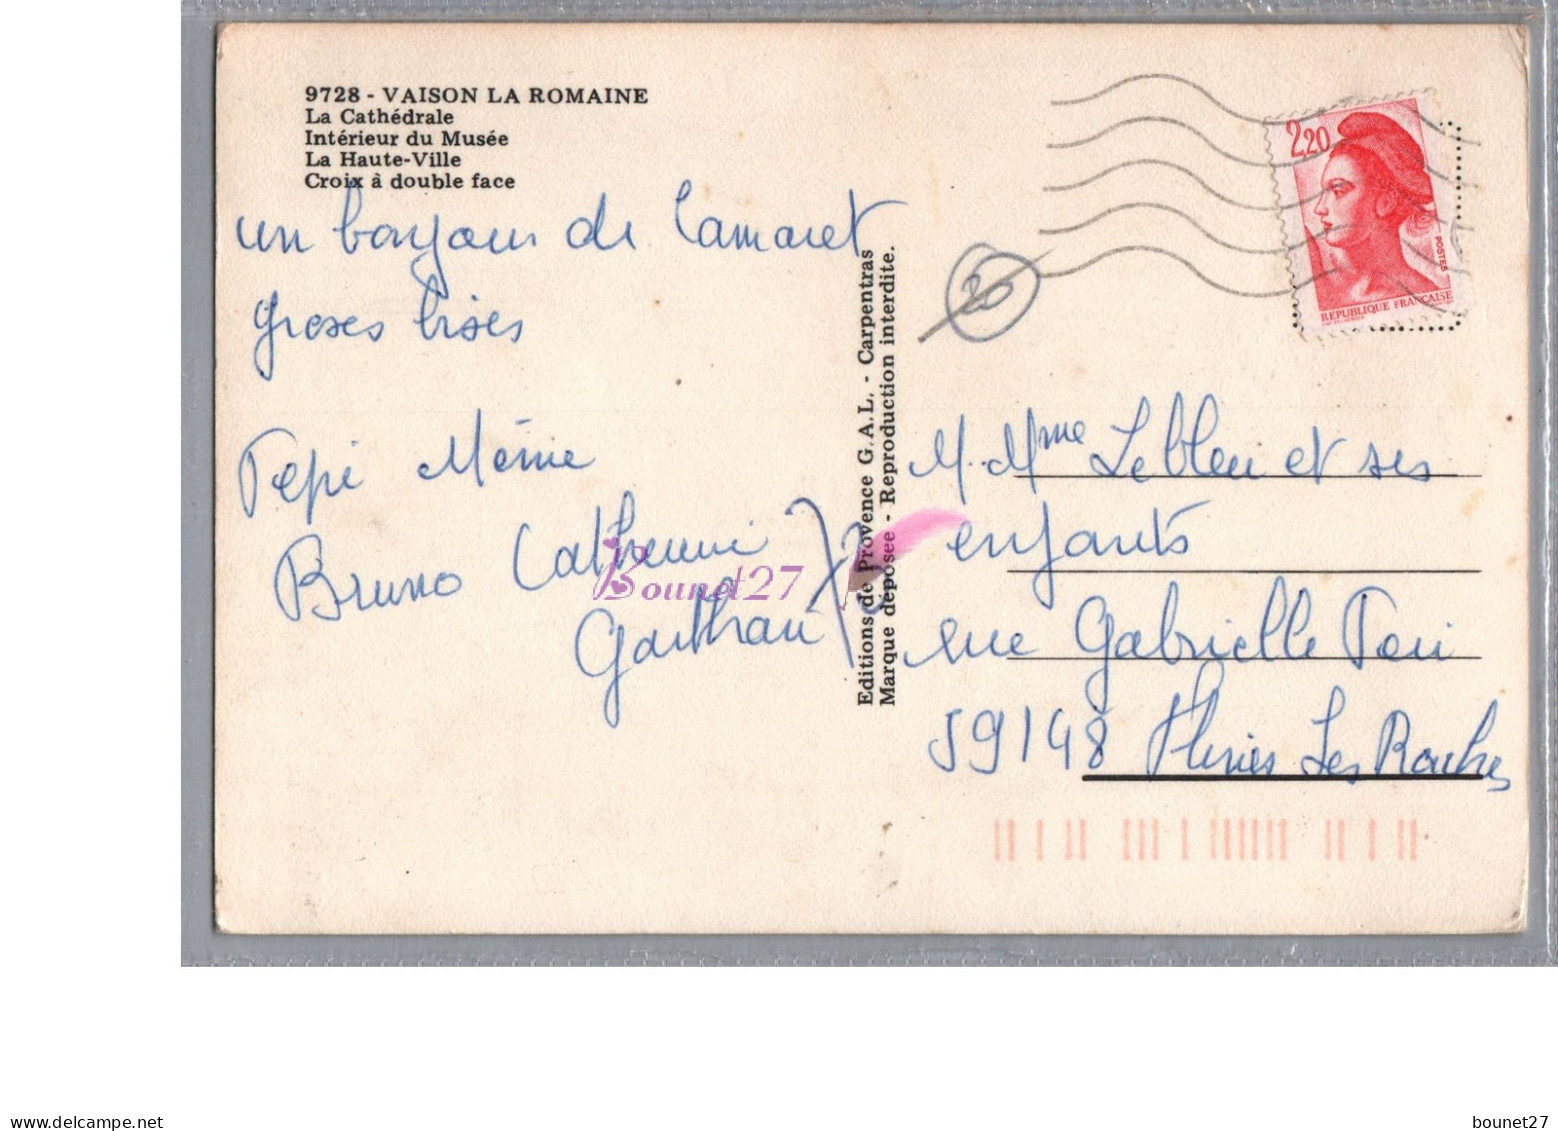 9728 - VAISON LA ROMAINE
La Cathédrale
Intérieur du Musée
La Haute-Ville
Croix à double face
un bonjour de Camaret
groses bises
Pepi Mémé
Bruno Catherine
Editions de Provence G.A.L. - Carpentras
Marque déposée - Reproduction interdite.
Bounet27
2,20
POSTES
REPUBLIQUE FRANÇAISE
20
M. Mme Lebleu et ses
enfants
rue Gabrielle Peri
59148 Flines Les Raches
delcampe.net
bounet27